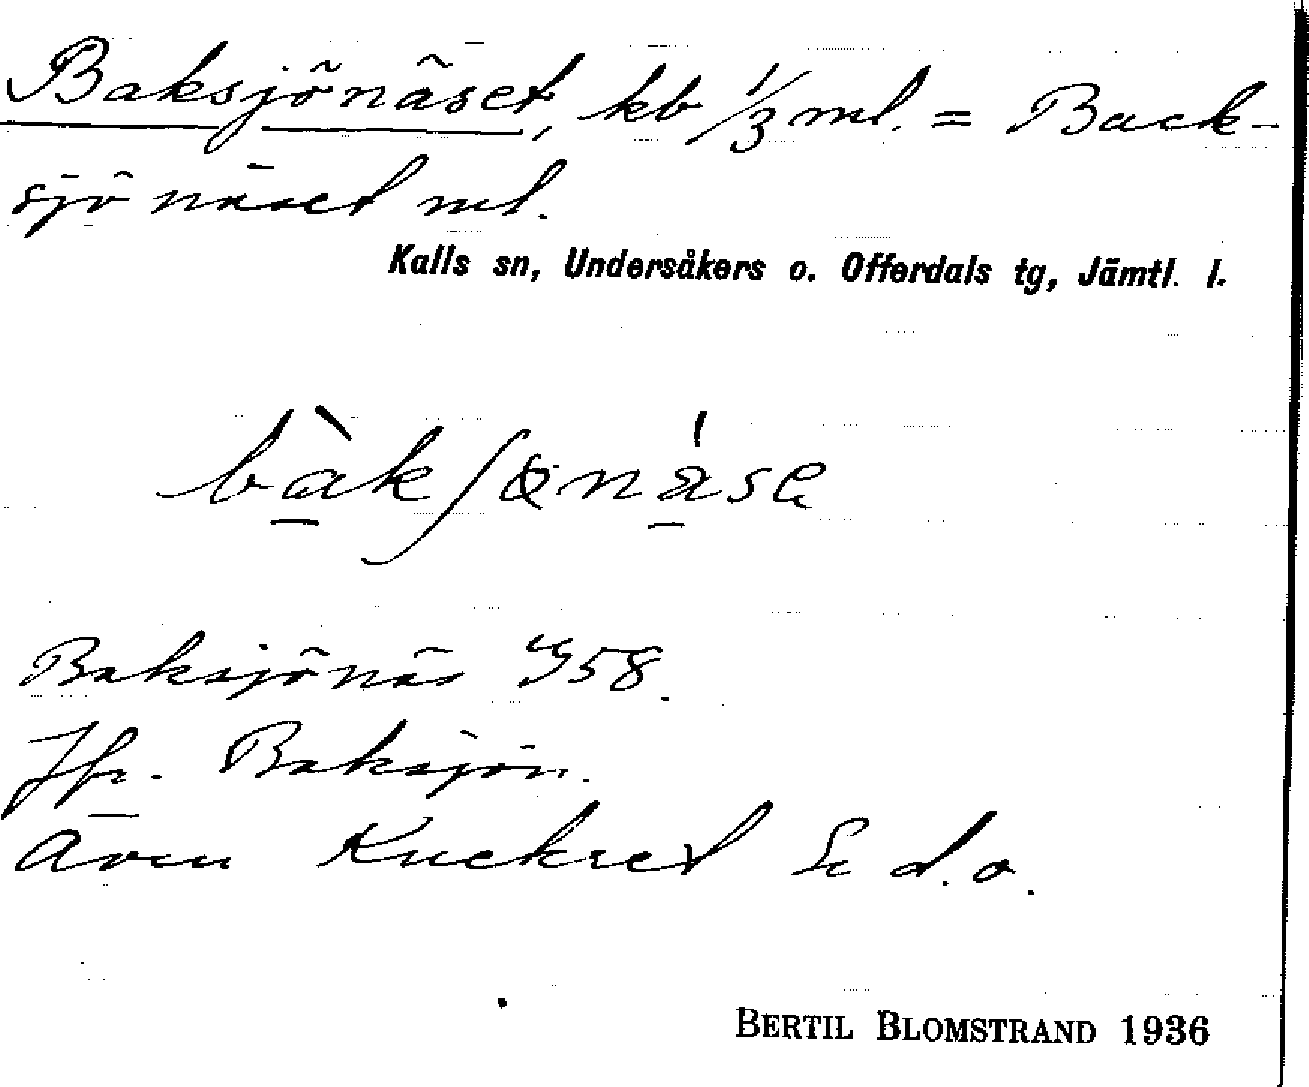 Baksjönäset, kb 1/3 ml. = Back-
sjönäset ml.
Kalls sn, Undersåkers o. Offerdals tg, Jämtl. l.
bàkʃønáse
Baksjönäs 958.
Jfr. Baksjön.
Även Knekset Se d.o.
BERTIL BLOMSTRAND 1936